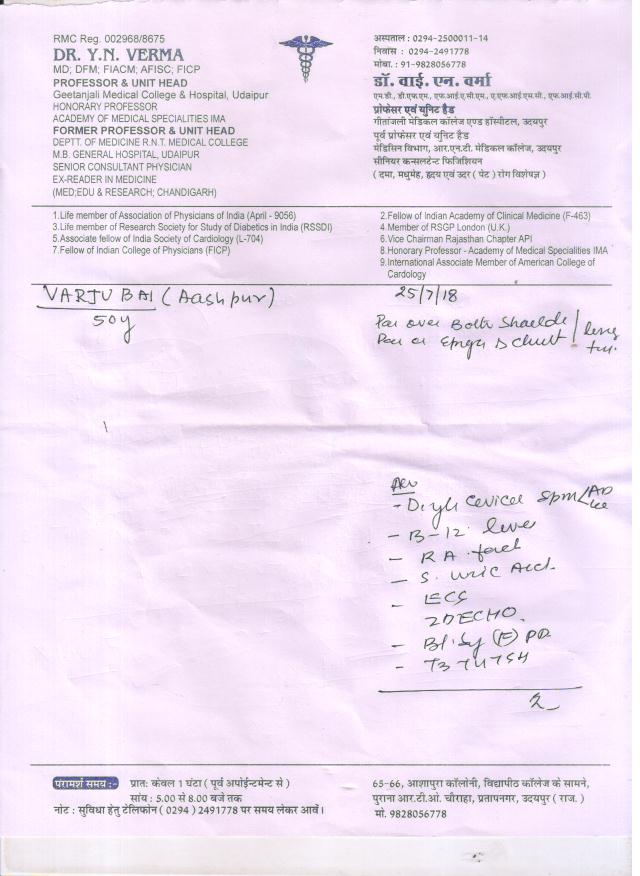 RMC Reg. 002968/8675
DR. Y.N. VERMA
MD; DFM; FIACM; AFISC; FICP
PROFESSOR & UNIT HEAD
Geetanjali Medical College & Hospital, Udaipur
HONORARY PROFESSOR
ACADEMY OF MEDICAL SPECIALITIES IMA
FORMER PROFESSOR & UNIT HEAD
DEPTT. OF MEDICINE R.N.T. MEDICAL COLLEGE
M.B. GENERAL HOSPITAL, UDAIPUR
SENIOR CONSULTANT PHYSICIAN
EX-READER IN MEDICINE
(MED;EDU & RESEARCH; CHANDIGARH)
अस्पताल : 0294-2500011-14
निवास : 0294-2491778
मोबा. : 91-9828056778
डॉ. वाई. एन. वर्मा
एम.डी., डी.एफ.एम., एफ.आई.ए.सी.एम., ए.एफ.आई.एस.सी., एफ.आई.सी.पी.
प्रोफेसर एवं युनिट हैड
गीतांजली मेडिकल कॉलेज एण्ड हॉस्पीटल, उदयपुर
पूर्व प्रोफेसर एवं युनिट हैड
मेडिसिन विभाग, आर.एन.टी. मेडिकल कॉलेज, उदयपुर
सीनियर कन्सलटेन्ट फिजिशियन
( दमा, मधुमेह, हृदय एवं उदर ( पेट ) रोग विशेषज्ञ )
1.Life member of Association of Physicians of India (April - 9056)
3.Life member of Research Society for Study of Diabetics in India (RSSDI)
5.Associate fellow of India Society of Cardiology (L-704)
7.Fellow of Indian College of Physicians (FICP)
2.Fellow of Indian Academy of Clinical Medicine (F-463)
4.Member of RSGP London (U.K.)
6.Vice Chairman Rajasthan Chapter API
8.Honorary Professor - Academy of Medical Specialities IMA
9.International Associate Member of American College of
Cardology
VARJU BAI (Aashpur)
50y
25/7/18
over Both
Adv
- B-12 level
- RA
- S. Uric Acid
- ECG
2DECHO.
- T3 T4 TSH
परामर्श समय :-
प्रात: केवल 1 घंटा ( पूर्व अपोईन्टमेन्ट से )
सांय : 5.00 से 8.00 बजे तक
नोट : सुविधा हेतु टेलिफोन ( 0294 ) 2491778 पर समय लेकर आवें।
65-66, आशापुरा कॉलोनी, विद्यापीठ कॉलेज के सामने,
पुराना आर.टी.ओ. चौराहा, प्रतापनगर, उदयपुर ( राज. )
मो. 9828056778